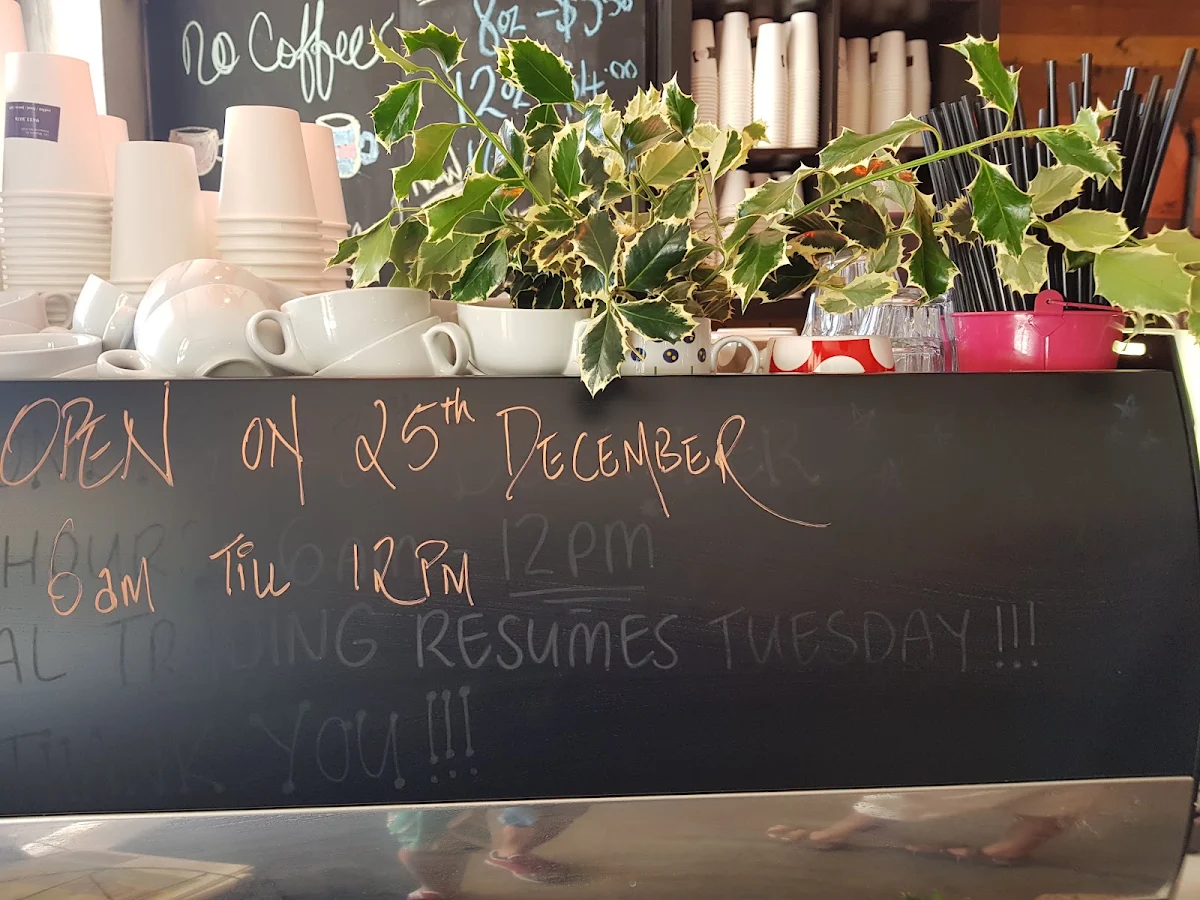 No Coffee
8oz - $3.50
12oz 4.00
OPEN ON 25th DECEMBER
6am Till 12PM
HOURS 6am - 12pm
TRADING RESUMES TUESDAY!!!
THANK YOU!!!